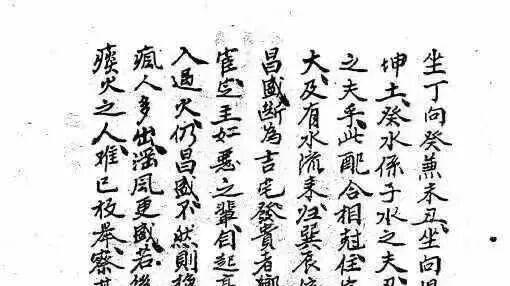 坐丁向癸兼未丑坐向俱
坤土癸水係子水之夫丑
之夫乎此配合相尅住
大及有水流来归巽辰
昌盛断為吉宅發貴者
宦定主如惡之輩自起
入過火仍昌盛不然則
瘋人多出滛風更盛若後
痰火之人难已放舉察其